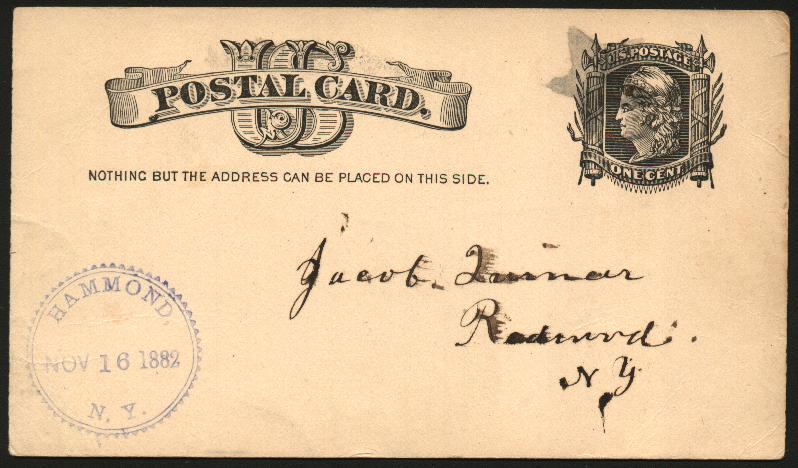 US
POSTAL CARD.
U.S. POSTAGE
ONE CENT
NOTHING BUT THE ADDRESS CAN BE PLACED ON THIS SIDE.
Jacob
Redwood.
NY
HAMMOND,
NOV 16 1882
N. Y.